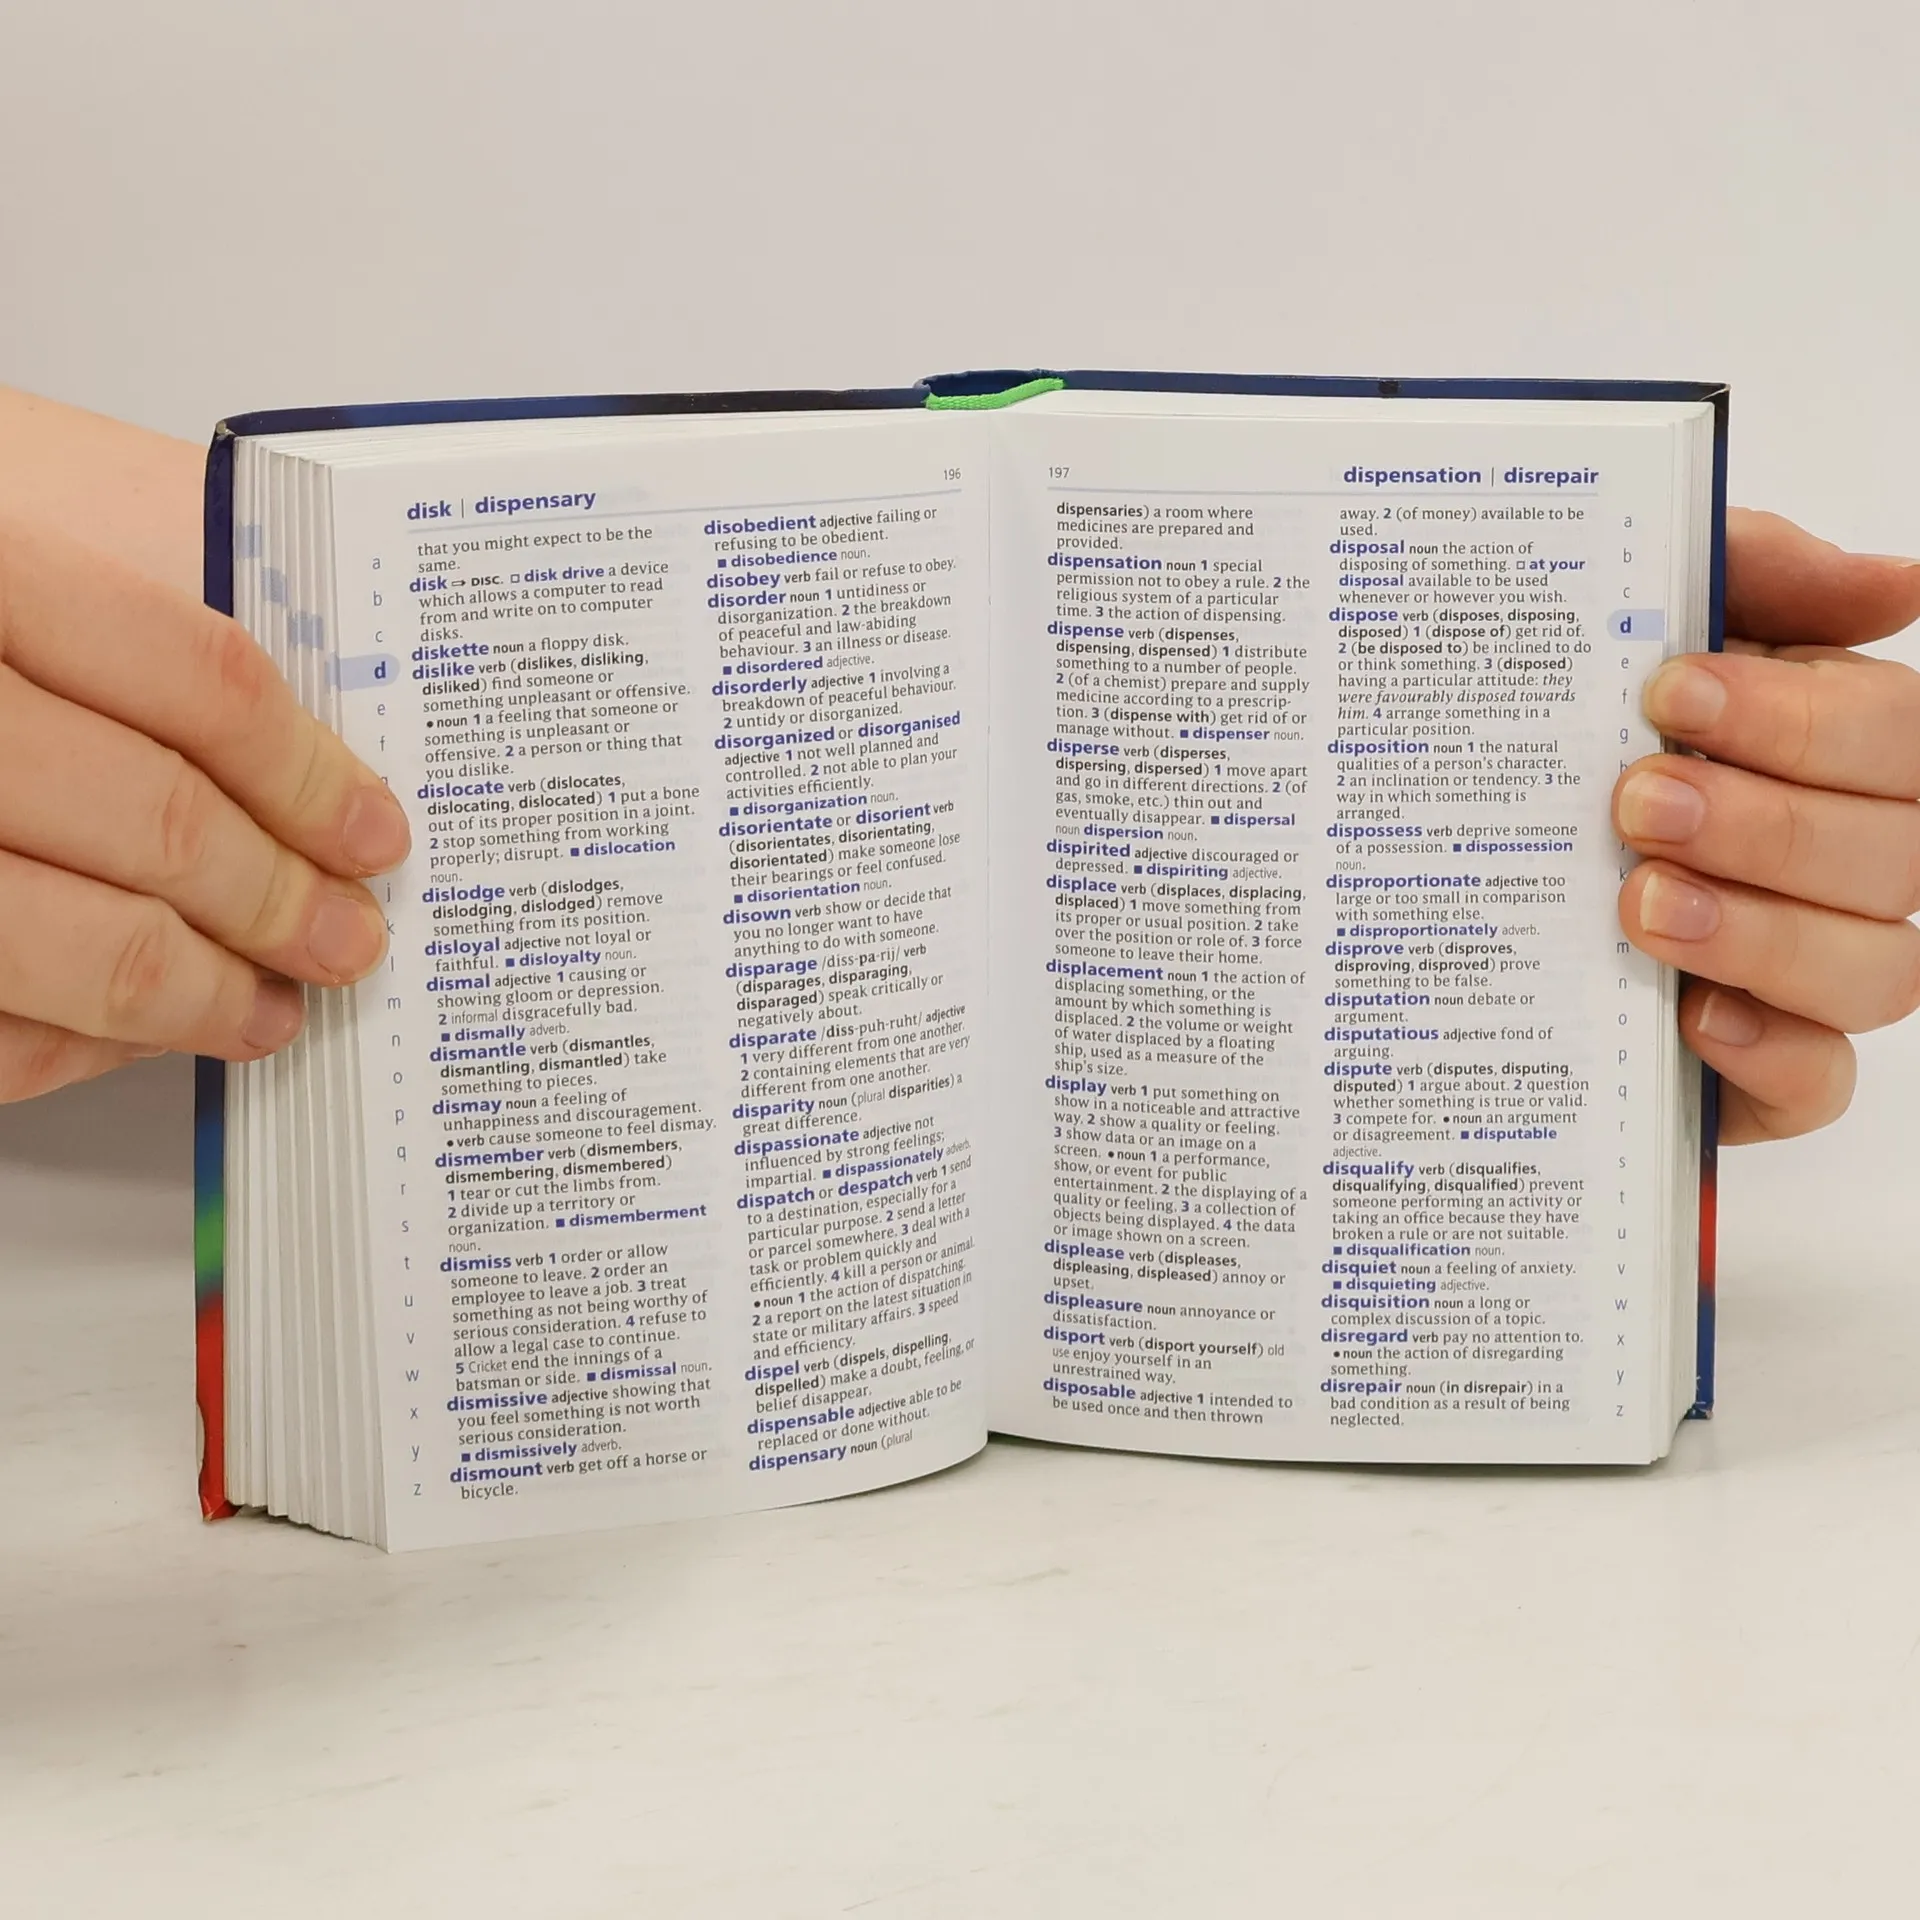 disk | dispensary
196
that you might expect to be the
same.
disk ⇒ DISC. □ disk drive a device
which allows a computer to read
from and write on to computer
disks.
diskette noun a floppy disk.
dislike verb (dislikes, disliking,
disliked) find someone or
something unpleasant or offensive.
• noun 1 a feeling that someone or
something is unpleasant or
offensive. 2 a person or thing that
you dislike.
dislocate verb (dislocates,
dislocating, dislocated) 1 put a bone
out of its proper position in a joint.
2 stop something from working
properly; disrupt. ■ dislocation
noun.
dislodge verb (dislodges,
dislodging, dislodged) remove
something from its position.
disloyal adjective not loyal or
faithful. ■ disloyalty noun.
dismal adjective 1 causing or
showing gloom or depression.
2 informal disgracefully bad.
■ dismally adverb.
dismantle verb (dismantles,
dismantling, dismantled) take
something to pieces.
dismay noun a feeling of
unhappiness and discouragement.
• verb cause someone to feel dismay.
dismember verb (dismembers,
dismembering, dismembered)
1 tear or cut the limbs from.
2 divide up a territory or
organization. ■ dismemberment
noun.
dismiss verb 1 order or allow
someone to leave. 2 order an
employee to leave a job. 3 treat
something as not being worthy of
serious consideration. 4 refuse to
allow a legal case to continue.
5 Cricket end the innings of a
batsman or side. ■ dismissal noun.
dismissive adjective showing that
you feel something is not worth
serious consideration.
■ dismissively adverb.
dismount verb get off a horse or
bicycle.
disobedient adjective failing or
refusing to be obedient.
■ disobedience noun.
disobey verb fail or refuse to obey.
disorder noun 1 untidiness or
disorganization. 2 the breakdown
of peaceful and law-abiding
behaviour. 3 an illness or disease.
■ disordered adjective.
disorderly adjective 1 involving a
breakdown of peaceful behaviour.
2 untidy or disorganized.
disorganized or disorganised
adjective 1 not well planned and
controlled. 2 not able to plan your
activities efficiently.
■ disorganization noun.
disorientate or disorient verb
(disorientates, disorientating,
disorientated) make someone lose
their bearings or feel confused.
■ disorientation noun.
disown verb show or decide that
you no longer want to have
anything to do with someone.
disparage /diss-pa-rij/ verb
(disparages, disparaging,
disparaged) speak critically or
negatively about.
disparate /diss-puh-ruht/ adjective
1 very different from one another.
2 containing elements that are very
different from one another.
disparity noun (plural disparities) a
great difference.
dispassionate adjective not
influenced by strong feelings;
impartial. ■ dispassionately adverb.
dispatch or despatch verb 1 send
to a destination, especially for a
particular purpose. 2 send a letter
or parcel somewhere. 3 deal with a
task or problem quickly and
efficiently. 4 kill a person or animal.
• noun 1 the action of dispatching.
2 a report on the latest situation in
state or military affairs. 3 speed
and efficiency.
dispel verb (dispels, dispelling,
dispelled) make a doubt, feeling, or
belief disappear.
dispensable adjective able to be
replaced or done without.
dispensary noun (plural
a
b
c
d
e
f
j
k
l
m
n
o
p
q
r
s
t
u
v
w
x
y
z
197
dispensation | disrepair
dispensaries) a room where
medicines are prepared and
provided.
dispensation noun 1 special
permission not to obey a rule. 2 the
religious system of a particular
time. 3 the action of dispensing.
dispense verb (dispenses,
dispensing, dispensed) 1 distribute
something to a number of people.
2 (of a chemist) prepare and supply
medicine according to a prescrip-
tion. 3 (dispense with) get rid of or
manage without. ■ dispenser noun.
disperse verb (disperses,
dispersing, dispersed) 1 move apart
and go in different directions. 2 (of
gas, smoke, etc.) thin out and
eventually disappear. ■ dispersal
noun dispersion noun.
dispirited adjective discouraged or
depressed. ■ dispiriting adjective.
displace verb (displaces, displacing,
displaced) 1 move something from
its proper or usual position. 2 take
over the position or role of. 3 force
someone to leave their home.
displacement noun 1 the action of
displacing something, or the
amount by which something is
displaced. 2 the volume or weight
of water displaced by a floating
ship, used as a measure of the
ship's size.
display verb 1 put something on
show in a noticeable and attractive
way. 2 show a quality or feeling.
3 show data or an image on a
screen. • noun 1 a performance,
show, or event for public
entertainment. 2 the displaying of a
quality or feeling. 3 a collection of
objects being displayed. 4 the data
or image shown on a screen.
displease verb (displeases,
displeasing, displeased) annoy or
upset.
displeasure noun annoyance or
dissatisfaction.
disport verb (disport yourself) old
use enjoy yourself in an
unrestrained way.
disposable adjective 1 intended to
be used once and then thrown
away. 2 (of money) available to be
used.
disposal noun the action of
disposing of something. □ at your
disposal available to be used
whenever or however you wish.
dispose verb (disposes, disposing,
disposed) 1 (dispose of) get rid of.
2 (be disposed to) be inclined to do
or think something. 3 (disposed)
having a particular attitude: they
were favourably disposed towards
him. 4 arrange something in a
particular position.
disposition noun 1 the natural
qualities of a person's character.
2 an inclination or tendency. 3 the
way in which something is
arranged.
dispossess verb deprive someone
of a possession. ■ dispossession
noun.
disproportionate adjective too
large or too small in comparison
with something else.
■ disproportionately adverb.
disprove verb (disproves,
disproving, disproved) prove
something to be false.
disputation noun debate or
argument.
disputatious adjective fond of
arguing.
dispute verb (disputes, disputing,
disputed) 1 argue about. 2 question
whether something is true or valid.
3 compete for. • noun an argument
or disagreement. ■ disputable
adjective.
disqualify verb (disqualifies,
disqualifying, disqualified) prevent
someone performing an activity or
taking an office because they have
broken a rule or are not suitable.
■ disqualification noun.
disquiet noun a feeling of anxiety.
■ disquieting adjective.
disquisition noun a long or
complex discussion of a topic.
disregard verb pay no attention to.
• noun the action of disregarding
something.
disrepair noun (in disrepair) in a
bad condition as a result of being
neglected.
a
b
c
d
e
f
g
k
m
n
o
p
q
r
s
t
u
v
w
x
y
z